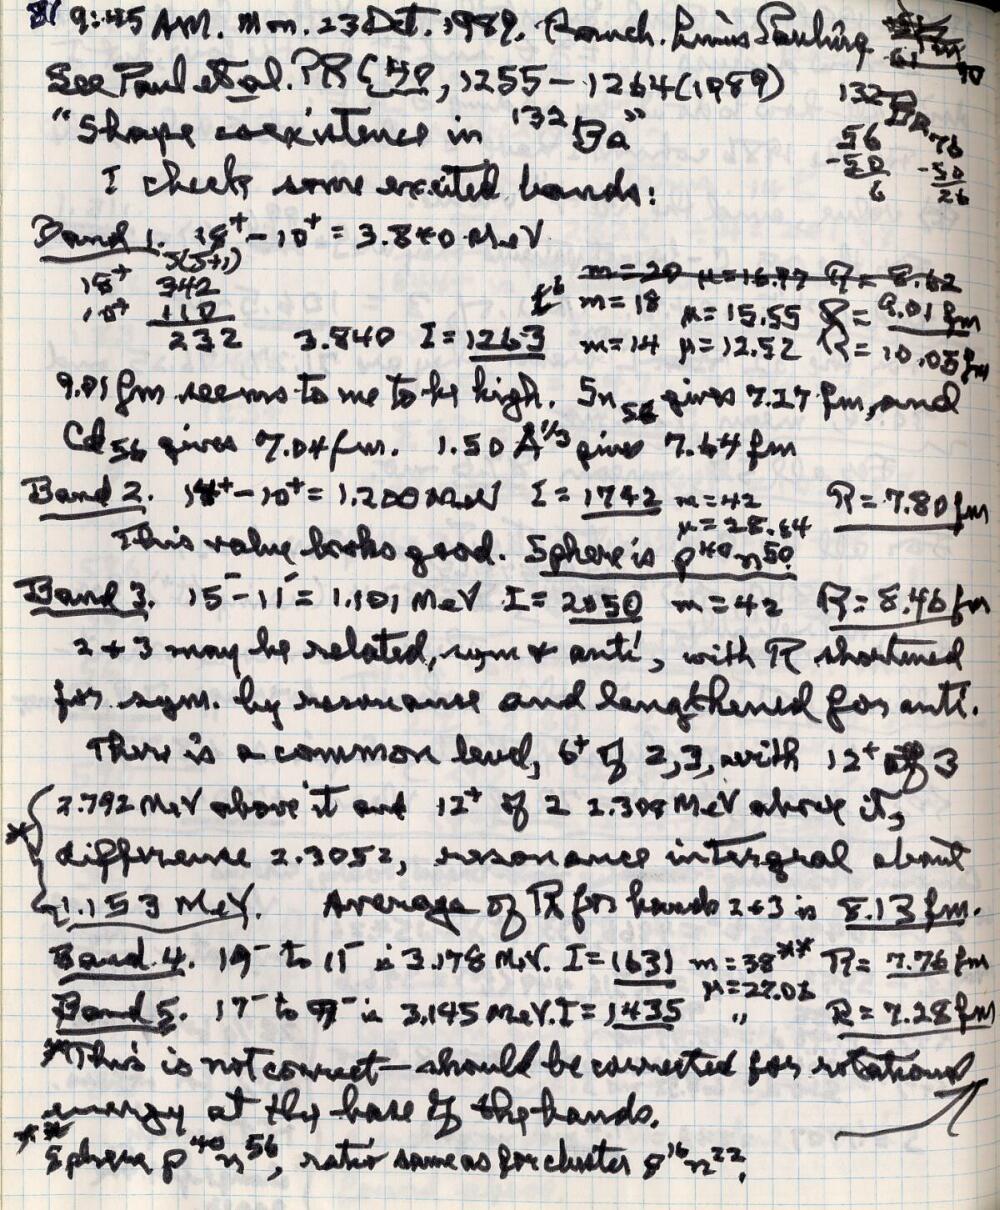 9:45 AM. Mon. 23 Oct. 1989. Ranch. Linus Pauling
See Paul et al. PR C 40, 1255-1264 (1989)
"Shape coexistence in ¹³²Ba"
¹³²Ba₇₆
56
-50
6
76
-50
26
I check some excited bands:
Band 1. 18⁺-10⁺ = 3.840 MeV
J(J+1)
18⁺ 342
10⁺ 110
232 3.840 I = 1263
m=20 μ=16.97 R=8.62
m=18 μ=15.55 R=9.01 fm
m=14 μ=12.52 R=10.05 fm
9.01 fm seems to me to be high. Sn₅₆ gives 7.27 fm, and
Cd₅₆ gives 7.04 fm. 1.50 A^1/3 gives 7.64 fm
Band 2. 14⁺-10⁺ = 1.200 MeV I = 1742 m=42 R=7.80 fm
μ=28.64
This value looks good. Sphere is p⁴⁰n⁵⁰
Band 3. 15⁻-11⁻ = 1.101 MeV I = 2050 m=42 R=8.46 fm
2 + 3 may be related, sym & anti, with R shortened
for sym. by resonance and lengthened for anti.
There is a common level, 6⁺ of 2,3, with 12⁺ of 3
* 2.792 MeV above it and 12⁺ of 2 2.308 MeV above it,
difference 2.3052, resonance integral about
1.153 MeV. Average of R for bands 2+3 is 8.13 fm.
Band 4. 19⁻ to 11⁻ is 3.178 MeV. I = 1631 m=38** R=7.76 fm
μ=27.06
Band 5. 17⁻ to 9⁻ is 3.145 MeV. I = 1435 " R=7.28 fm
*This is not correct—should be corrected for rotational
energy at the base of the bands.
** Sphere p⁴⁰n⁵⁶, ratio same as for cluster p¹⁶n²²,